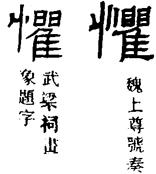 懼
魏上尊號奏
懼
武梁祠画
象題字